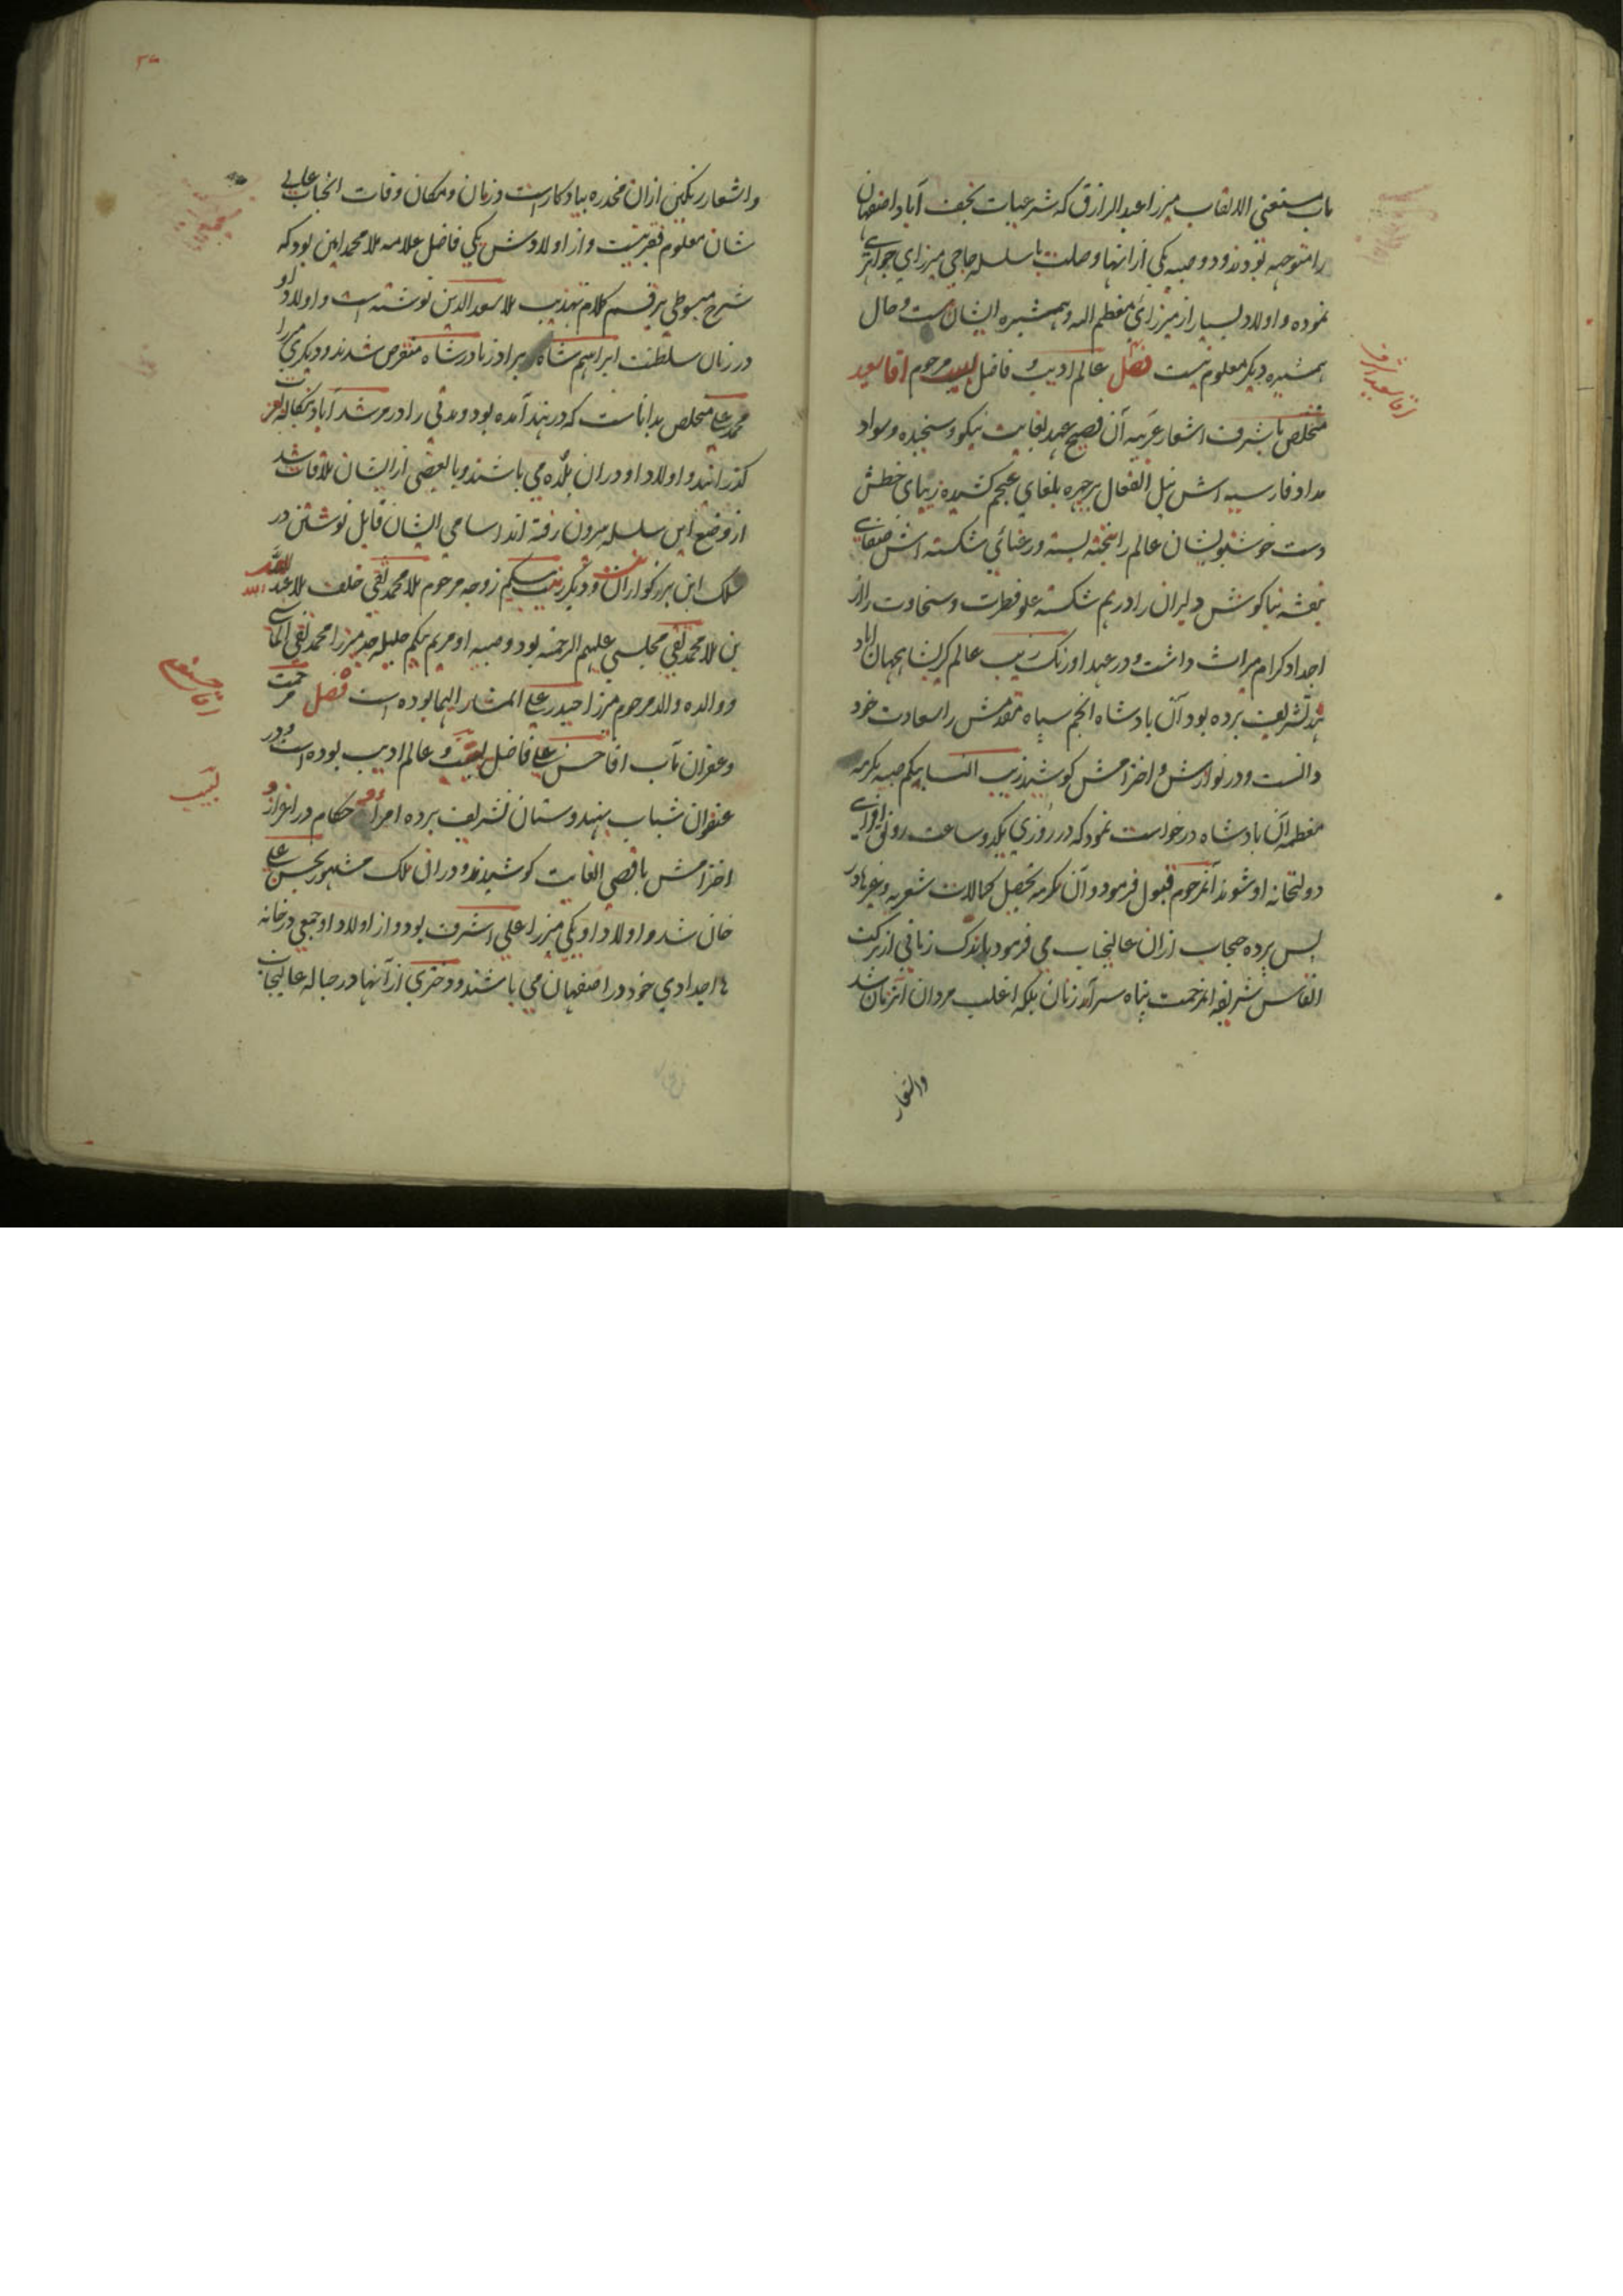 ماب مستغنی الالقاب میرزا عبدالرزاق که شرعیات نجف آباد اصفهان
را متوجه بودند و دو صبیه یکی از انها وصلت با سلسله حاجی میرزای جواهری
نموده و اولاد بسیار از میرزائی معظم الیه و همشیره ایشان هست و حال
همشیره دیگر معلوم نیست فصل عالم ادیب و فاضل لبیب مرحوم اقا سعید
متخلص باشرف اشعار عربیه آن فصیح عهد بغایت نیکو و سنجیده و سواد
مداد فارسیه اش نیل انفعال بر چهره بلغای عجم کشیده زیبای خطش
دست خوشنویسان عالم را بتخته بسته و رعنائی شکسته اش
بنفشه بناکوش دلبران را در هم شکسته علو فطرت و سخاوت را از
اجداد کرام میراث داشت و در عهد اورنک زیب عالم کیر بشاهجهان اباد
هند تشریف برده بود آن بادشاه انجم سپاه مقدمش را سعادت خود
دانست و در نوازش و احترامش کوشید زیب النسا بیکم صبیه مکرمه
معظمه آن بادشاه درخواست نمود که در روزی یکدو ساعت رونق افزای
دولتخانه او شوند آنمرحوم قبول فرمود و آن مکرمه تحصیل کمالات شعریه و غیرها در
پس پرده حجاب ازان عالیجناب می فرمود باندک زمانی از برکت
انفاس شریفه انرحمت پناه سرآمد زنان بلکه اغلب مردان انزمان شد
واشعار
اقا سعید اشرف
واشعار رنکین ازان مخدره بیادکار است و زمان و مکان وفات انجناب عالی
شان معلوم فقیر نیست و از اولادش یکی فاضل علامه ملا محمد امین بود که
شرح مبسوطی بر قسم کلام تهذیب ملا سعد الدین نوشته است و اولاد او
در زمان سلطنت ابراهیم شاه برادرزاده نادرشاه منقرض شدند و دیکری میرزا
محمد علی متخلص بداناست که در هند آمده بود و مدتی را در مرشد آباد بنکاله بعزت
کذرانید و اولاد او دران بلده می باشند و با بعضی از ایشان ملاقات شد
از وضع این سلسله بیرون رفته اند اسامی ایشان قابل نوشتن در
سلک این بزرکواران نیست و دیکر زینت بیکم زوجه مرحوم ملا محمد تقی خلف ملا عبد الله
بن ملا محمد تقی مجلسی علیهم الرحمه بود و صبیه او مریم بیکم حلیله جد میرزا محمد تقی الماسی
و والده والد مرحوم میرزا حیدر علی المشار الیهما بوده است فصل رحمت
و غفران مآب اقا حسن علی فاضل لبیب و عالم ادیب بوده است و در
عنفوان شباب بهندوستان تشریف برده امرا و حکام در اعزاز و
احترامش باقصی الغایت کوشیدند و دران ملک مشهور بحسن علی
خان شد و اولاد او یکی میرزا علی اشرف بود و از اولاد او جمعی در خانه
ها اجدادی خود در اصفهان می باشند و دختری از آنها در حباله عالیجناب
اقا حسنعلی
لبیب